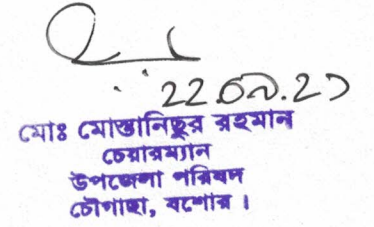 মোঃ মোস্তানিছুর রহমান
চেয়ারম্যান
উপজেলা পরিষদ
চৌগাছা, যশোর।